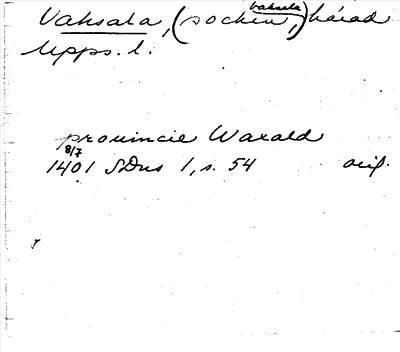 Vaksala, (socken, Vaksala) härad
Upps. l.
provincie Waxald
8/7
1401 SDns 1, s. 54 orig.